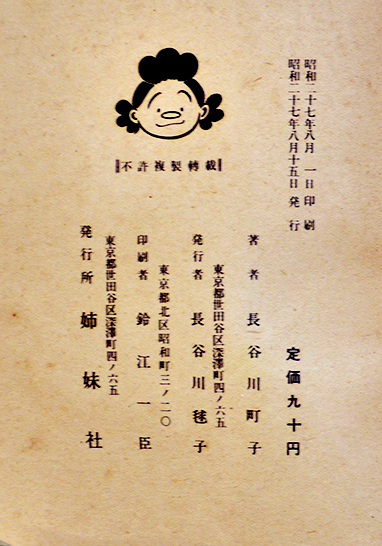 昭和二十七年八月一日印刷
昭和二十七年八月十五日発行
不許複製轉載
定価九十円
著者 長谷川町子
東京都世田谷区深澤町四ノ六五
発行者 長谷川毬子
東京都北区昭和町三ノ二〇
印刷者 鈴江一臣
東京都世田谷区深澤町四ノ六五
発行所 姉妹社